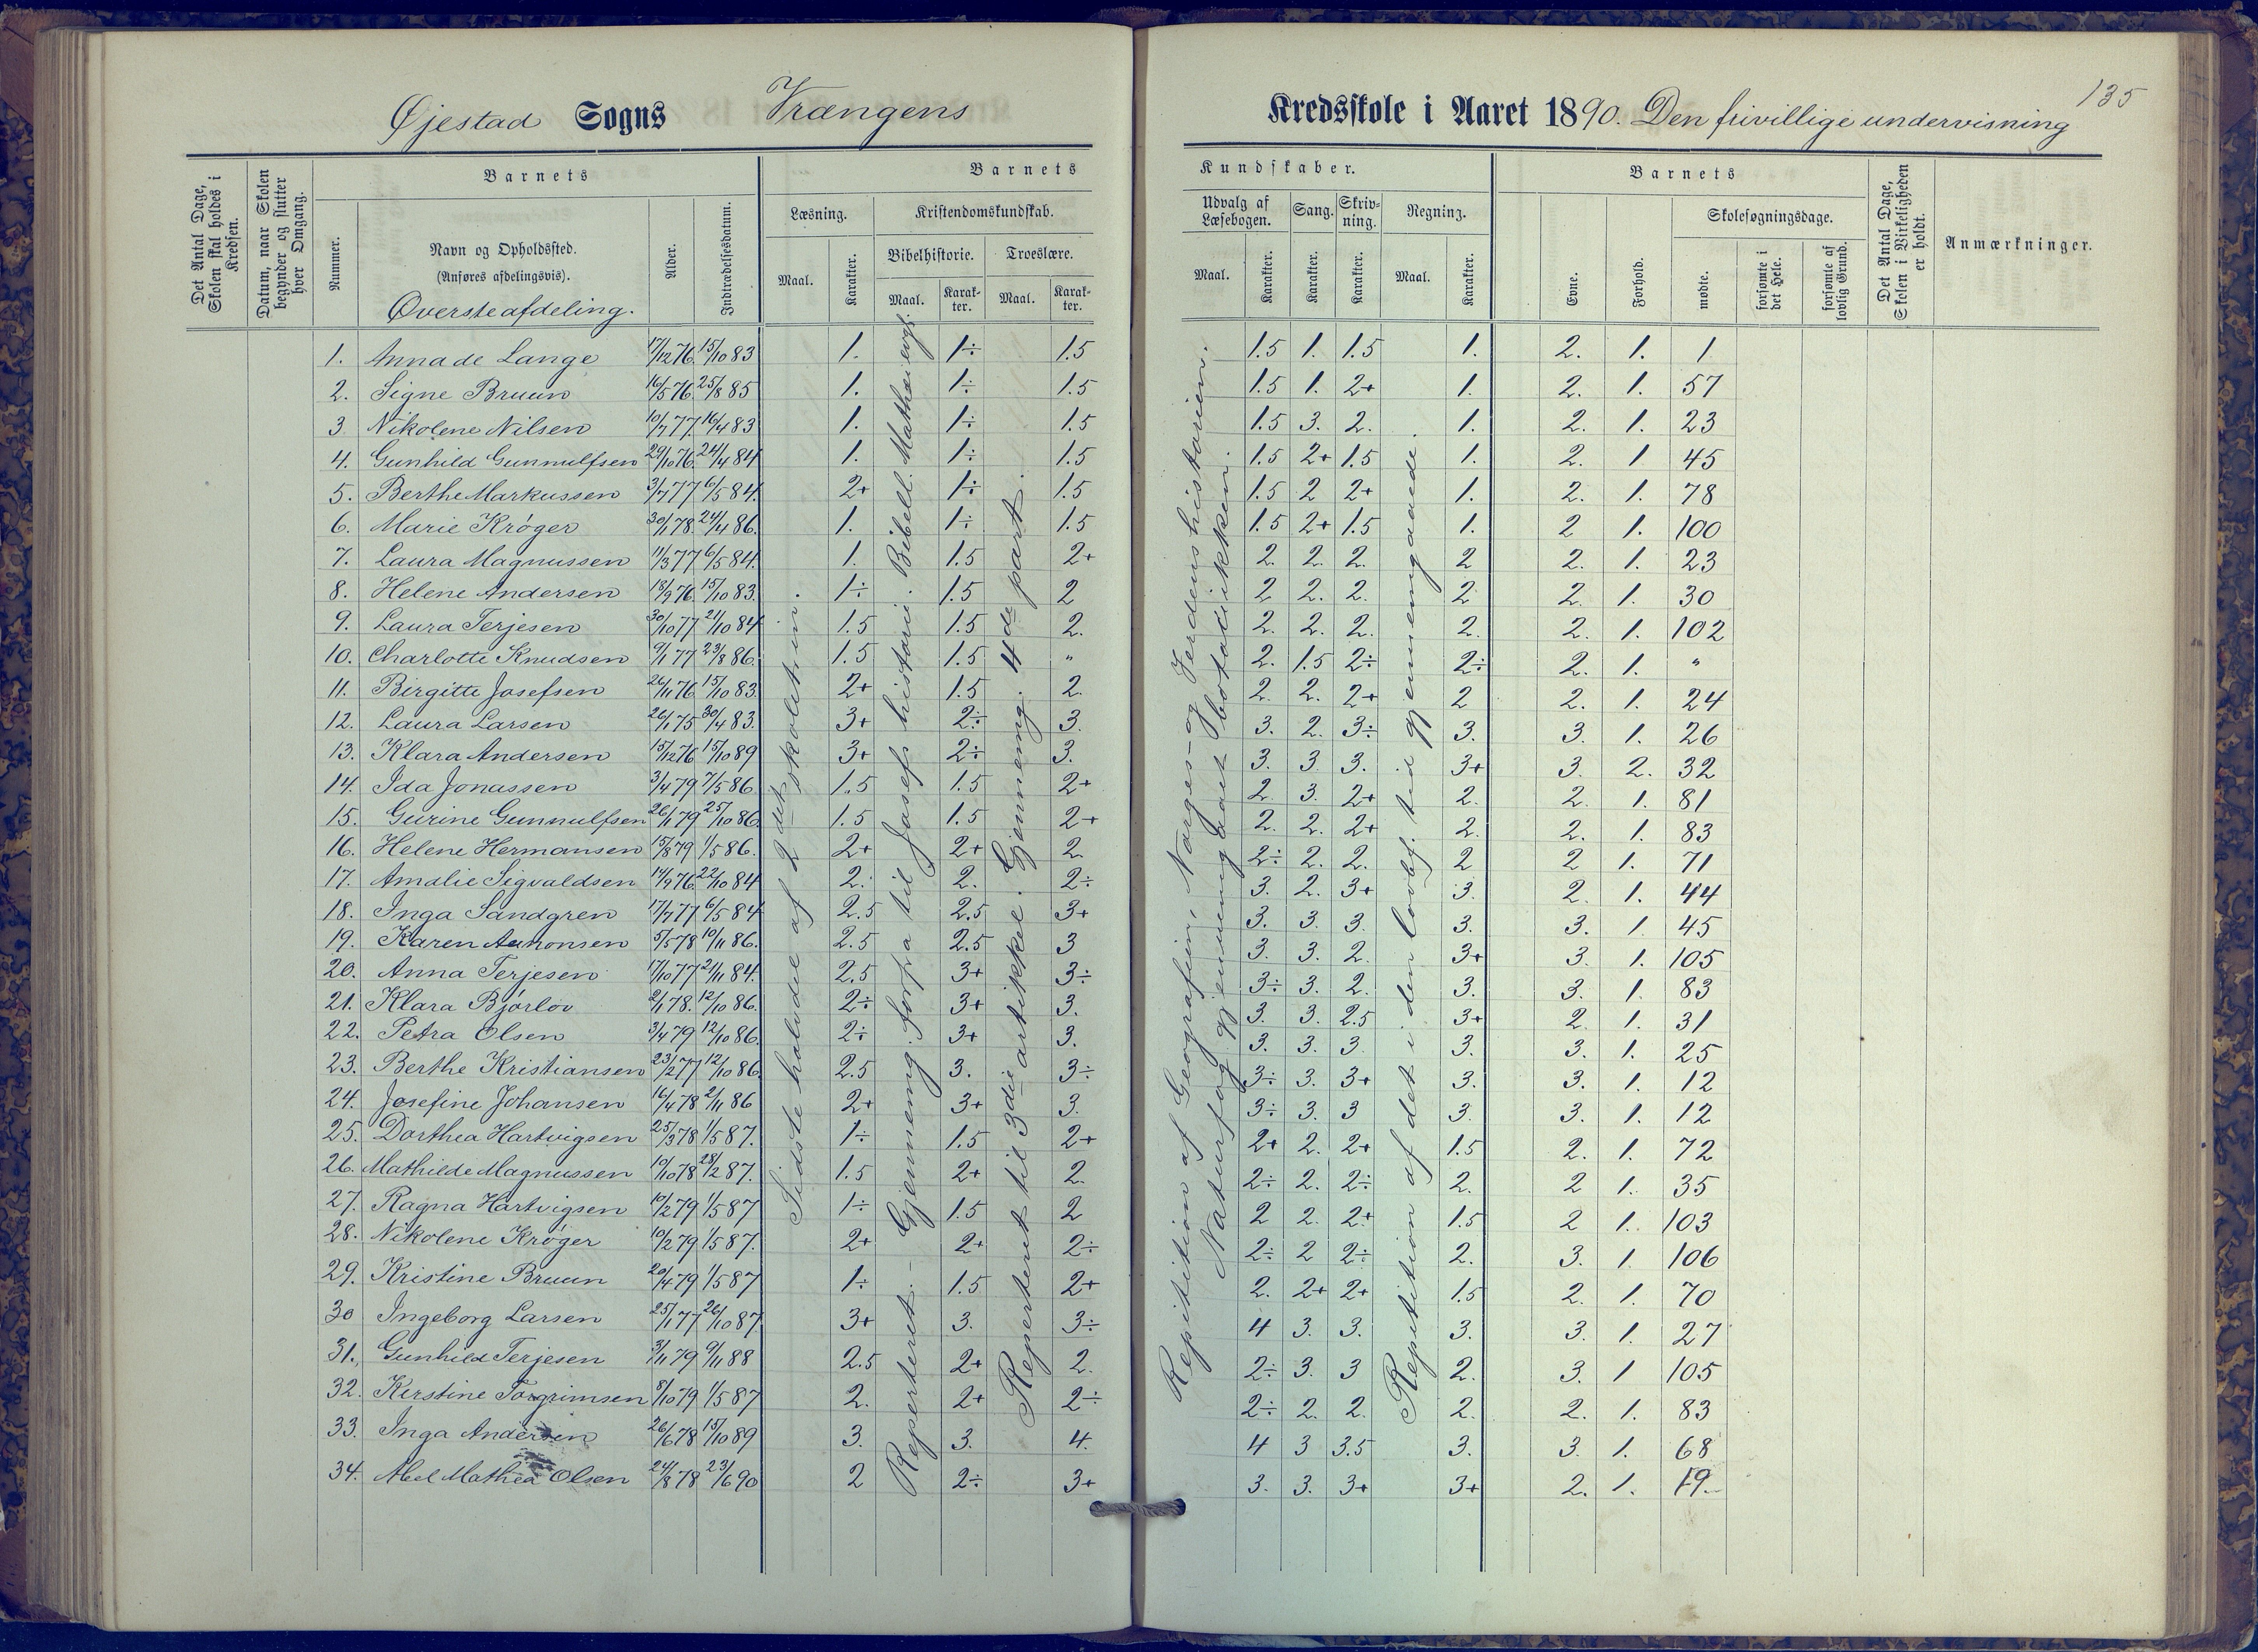 135
Øjestad Sogns Vrængens Kredsskole i Aaret 1890. Den frivillige undervisning
Det Antal Dage, Skolen skal holdes i Kredsen.
Datum, naar Skolen begynder og slutter hver Omgang.
Barnets
Nummer.
Navn og Opholdssted.
(Anføres afdelingsvis).
Øversteafdeling.
Alder.
Indtrædelsesdatum.
Barnets Kundskaber.
Læsning. Kristendomskundskab. Udvalg af Læsebogen. Sang. Skrivning. Regning.
Bibelhistorie. Troeslære.
Maal. Karakter. Maal. Karakter. Maal. Karakter. Maal. Karakter. Karakter. Karakter. Maal. Karakter.
Barnets
Evne. Forhold. Skolesøgningsdage.
mødte. forsømte i det Hele. forsømte af lovlig Grund.
Det Antal Dage, Skolen i Virkeligheden er holdt.
Anmærkninger.
Sidste halvdel af 2det skoletrin.
Reperteret. – Gjennemng. forfra til Josefs historie. Bibell. Mathæi evgl.
Reperteret til 3die artikkel. Gjennemng. 4de part.
Repitition af Geografien, Norges- og Verdenshistorien.
Naturfog gjennemgaaet Plotadrikken.
Repitition af det i den lovbf. tid gjennemgaaede.
1. Anna de Lange 17/12 76. 15/10 83 1. 1÷ 1.5 1.5 1. 1.5 1. 2. 1. 1
2. Signe Bruun 16/5 76. 25/8 85 1. 1÷ 1.5 1.5 1. 2+ 1. 2. 1. 57
3 Nikolene Nilsen 10/7 77. 16/4 83 1. 1÷ 1.5 1.5 3. 2. 1. 2. 1. 23
4. Gunhild Gunnulfsen 29/10 76. 24/4 84 1. 1÷ 1.5 1.5 2+ 1.5 1. 2. 1 45
5. Berthe Markussen 3/7 77 6/5 84. 2+ 1÷ 1.5 1.5 2 2+ 1. 2. 1. 78
6. Marie Krøger 30/1 78. 24/4 86. 1. 1÷ 1.5 1.5 2+ 1.5 1. 2 1. 100
7. Laura Magnussen 11/3 77 6/5 84. 1. 1.5 2+ 2. 2. 2. 2 2. 1. 23
8. Helene Andersen 18/9 76. 15/10 83. 1÷ 1.5 2 2 2. 2. 2 2. 1. 30
9. Laura Terjesen 30/10 77 21/10 84 1.5 1.5 2. 2. 2. 2. 2. 2. 1. 102
10. Charlotte Knudsen 9/1 77 23/8 86. 1.5 1.5 " 2. 1.5 2÷ 2÷ 2. 1. "
11. Birgitte Josefsen 26/11 76. 15/10 83. 2+ 1.5 2. 2. 2. 2+ 2 2. 1. 24
12. Laura Larsen 26/1 75 30/4 83. 3+ 2÷ 3. 3. 2. 3÷ 3. 3. 1. 26
13. Klara Andersen 15/12 76 15/10 89 3+ 2÷ 3. 3. 3. 3. 3+ 3. 2. 32
14. Ida Jonassen 3/4 79 7/5 86. 1.5 1.5 2+ 2. 3. 2+ 2. 2. 1. 81
15. Gurine Gunnulfsen 26/1 79 25/10 86. 1.5 1.5 2+ 2. 2. 2+ 2. 2. 1. 83
16. Helene Hermansen 15/8 79 1/5 86. 2+ 2+ 2. 2÷ 2. 2. 2 2 1. 71
17. Amalie Sigvaldsen 14/9 76. 22/10 84 2. 2. 2÷ 3. 2. 3+ 3. 2. 1. 44
18. Inga Sandgren 17/7 77 6/5 84 2.5 2.5 3+ 3. 3. 3. 3. 3. 1. 45
19. Karen Aanonsen 5/5 78 10/11 86. 2.5 2.5 3 3. 3. 2. 3+ 3. 1. 105
20. Anna Terjesen 17/10 77 21/11 84. 2.5 3+ 3÷ 3÷ 3. 2. 3. 3. 1. 83
21. Klara Bjørløv 2/1 78. 12/10 86. 2÷ 3+ 3. 3. 3. 2.5 3+ 2. 1. 31
22. Petra Olsen 3/4 79 12/10 86. 2÷ 3+ 3. 3. 3. 3 3. 3. 1. 25
23. Berthe Kristiansen 23/2 77 12/10 86. 2.5 3. 3÷ 3÷ 3. 3+ 3. 3. 1. 12
24. Josefine Johansen 16/4 78 2/11 86 2+ 3+ 3. 3÷ 3. 3 3. 3. 1. 12
25. Dorthea Hartvigsen 25/3 78 1/5 87. 1÷ 1.5 2+ 2+ 2. 2+ 1.5 2. 1. 72
26. Mathilde Magnussen 10/10 78 28/2 87. 1.5 2+ 2. 2÷ 2. 2÷ 2. 2 1. 35
27. Ragna Hartvigsen 10/2 79 1/5 87 1÷ 1.5 2 2 2. 2+ 1.5 2 1. 103
28. Nikolene Krøger 10/2 79 1/5 87. 2+ 2+ 2÷ 2÷ 2 2÷ 2. 3. 1. 106
29. Kristine Bruun 20/4 79 1/5 87 1÷ 1.5 2+ 2. 2+ 2+ 1.5 2. 1. 70
30 Ingeborg Larsen 25/1 77 26/10 87. 3+ 3. 3÷ 4 3. 3. 3. 3. 1. 27
31. Gunhild Terjesen 3/11 79 9/11 88 2.5 2+ 2. 2÷ 3. 3 2. 3. 1 105
32. Kirstine Torgrimsen 8/10 79 1/5 87 2. 2+ 2÷ 2÷ 2. 2. 2. 2. 1. 83
33. Inga Andersen 26/6 78 15/10 89 3. 3. 4. 4 3 3.5 3. 3. 1. 68
34. Abel Mathea Olsen 24/8 78 23/6 90 2 2÷ 3+ 3. 3. 3+ 3+ 2. 1. 19.